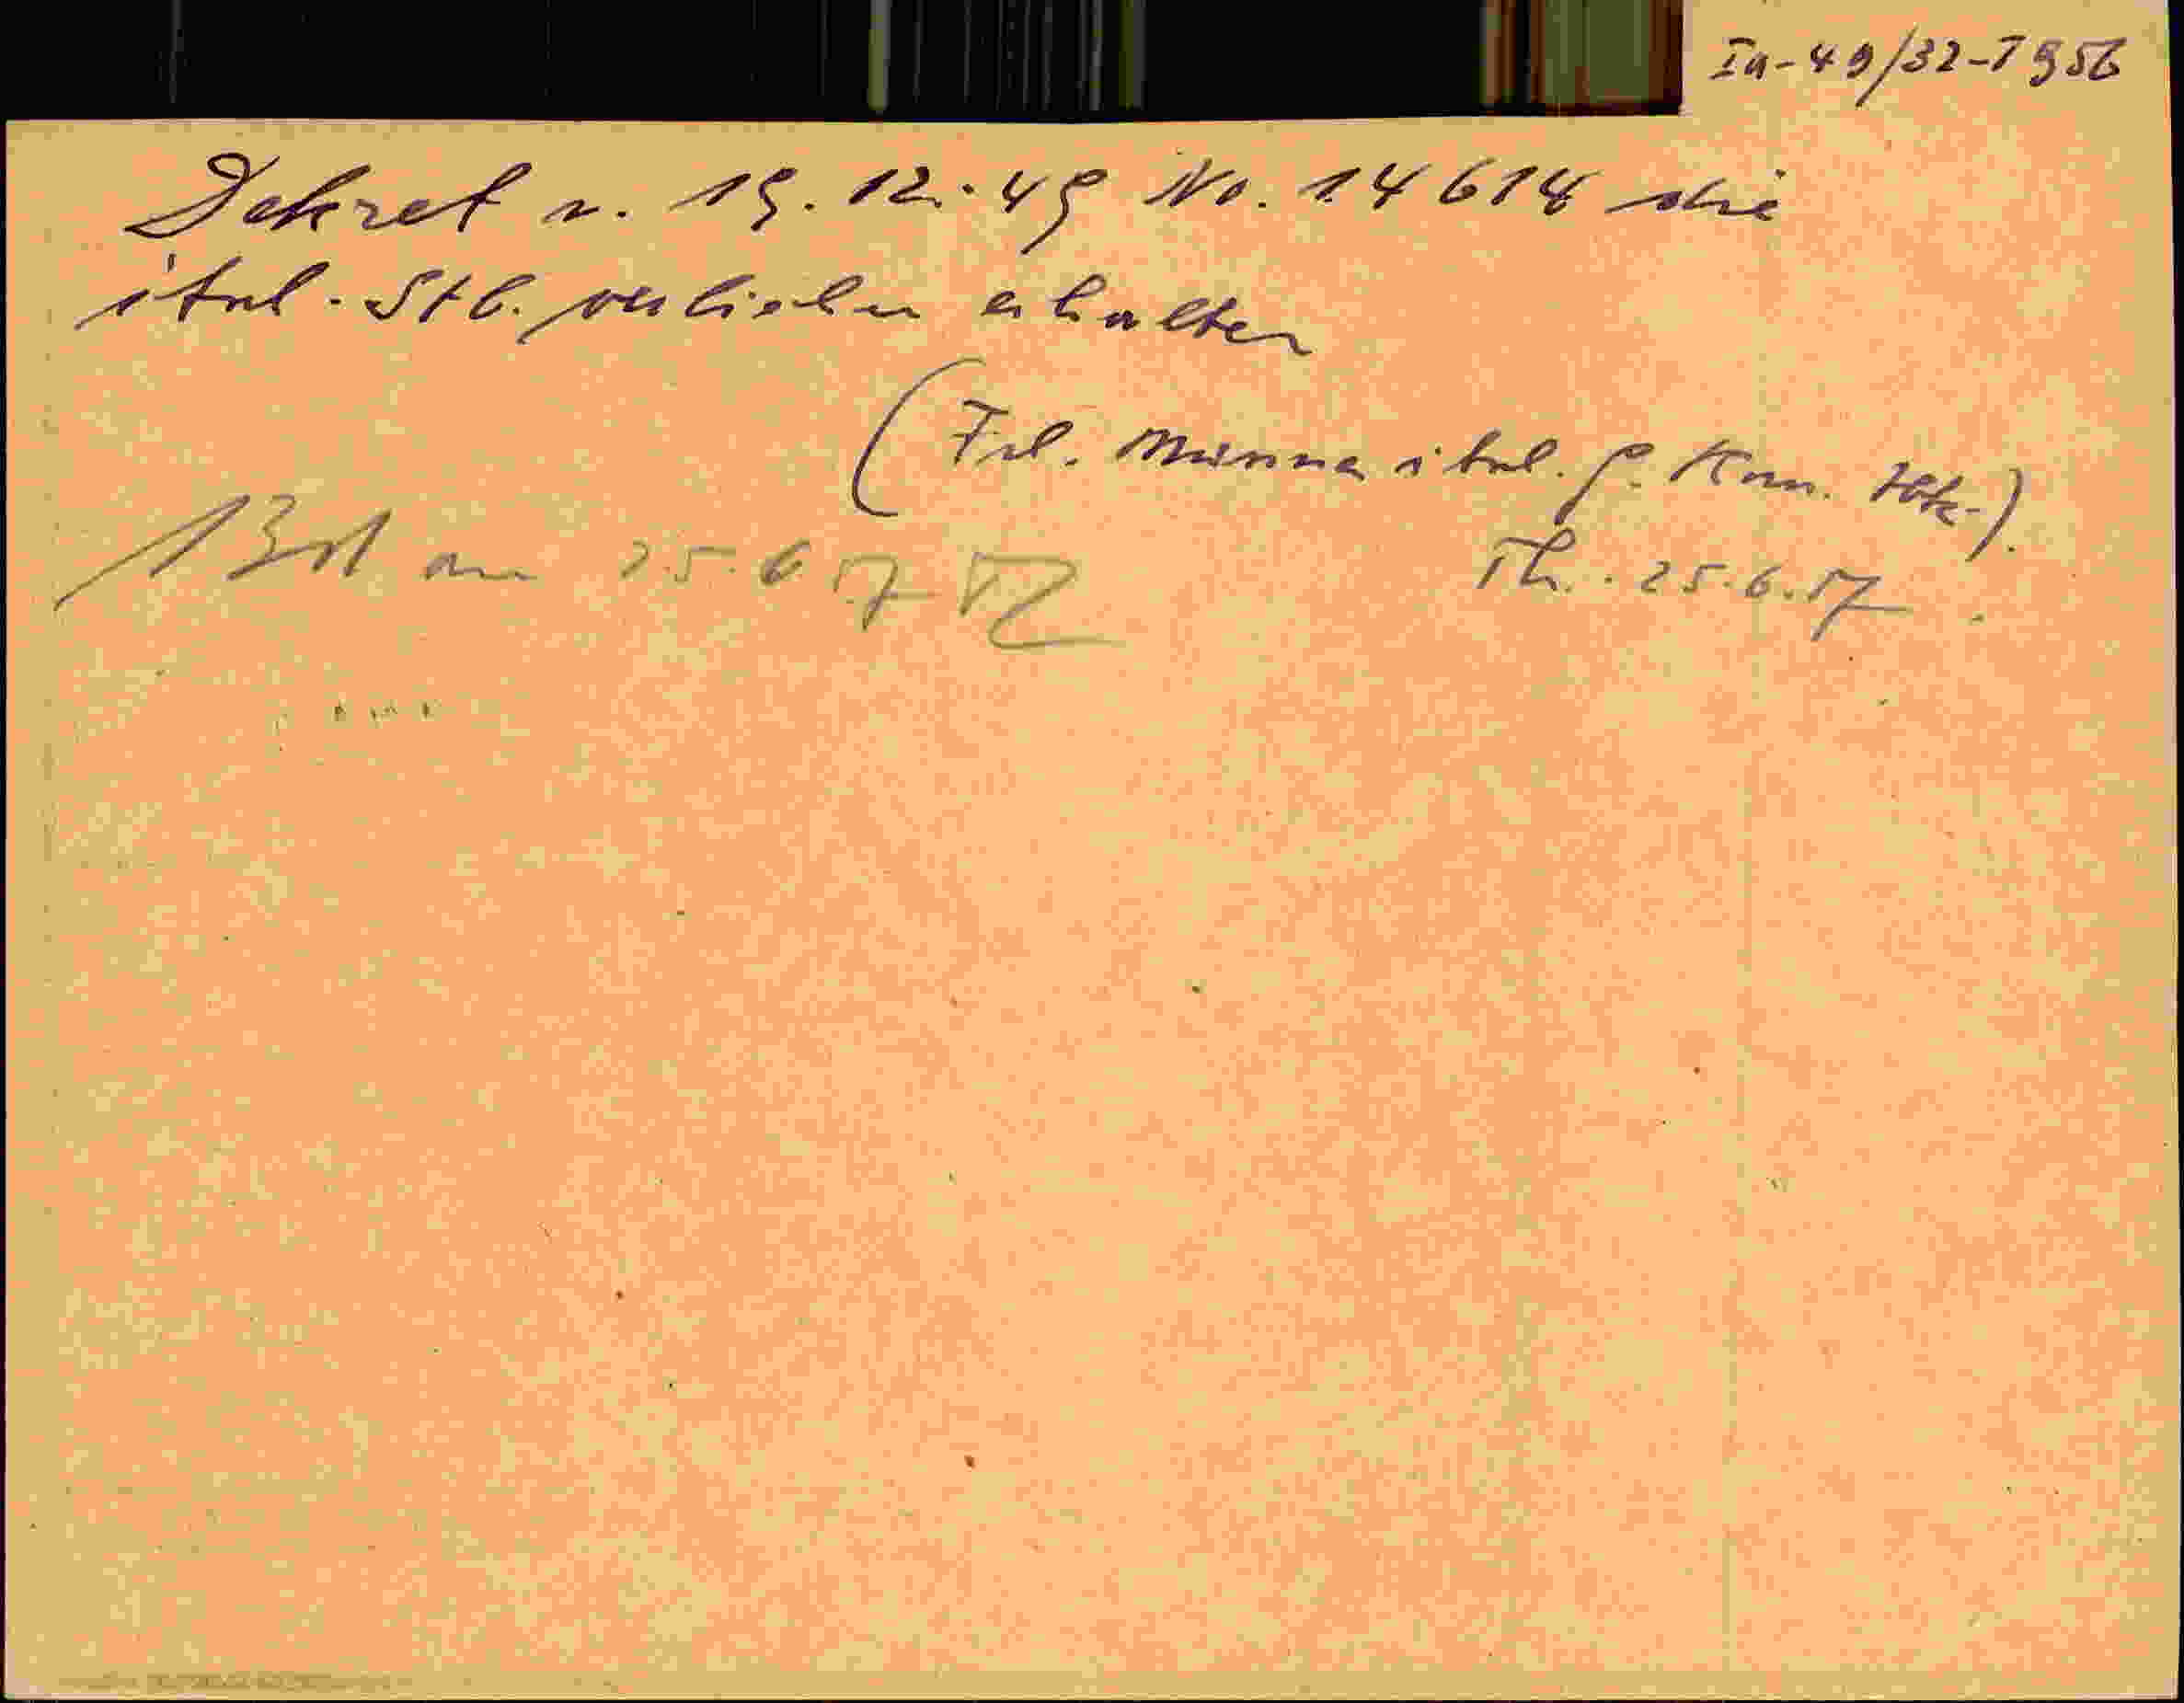 Ia-49/32-T956
Dekret v. 19.12.49 No. 14614 die
ital. Stb. verliehen erhalten
(Frl. Minna ital. G. Kon. Hbk.)
am 25.6.57
Th. 25.6.57